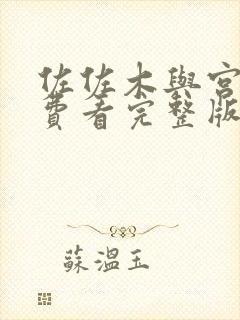 佐佐木與宮
費看完整版
蘇溫玉